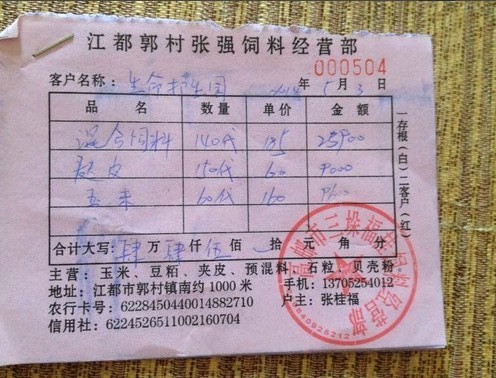 江都郭村张强饲料经营部
000504
客户名称： 年 5 月 3 日
品 名 数量 单价 金额
混合饲料 140代 185 25900
皮 150代 60 9000
玉米 60代 160 9600
合计大写：肆 万 肆 仟 伍 佰 拾 元 角 分
一存根（白）二客户（红）
主营：玉米、豆粕、夹皮、预混料、石粒、贝壳粉
地址：江都市郭村镇南约1000米 手机：13705254012
农行卡号：6228450440014882710 户主：张桂福
信用社：6224526511002160704
高邮市三垛福 饲料经营部